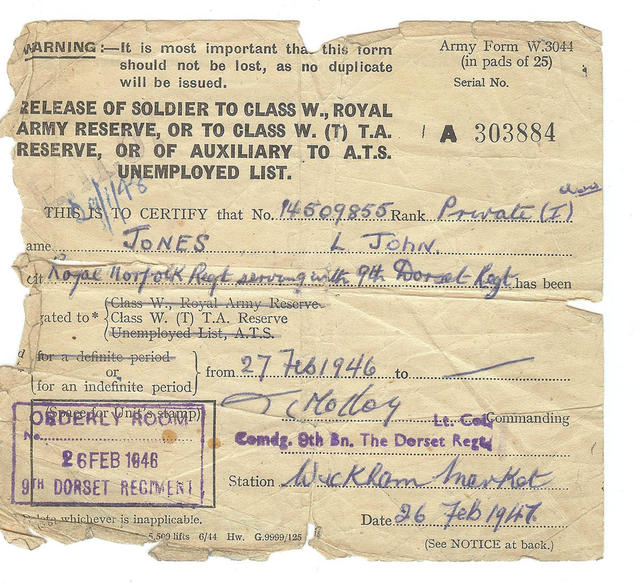 WARNING :—It is most important that this form
should not be lost, as no duplicate
will be issued.
Army Form W.3044
(in pads of 25)
Serial No.
RELEASE OF SOLDIER TO CLASS W., ROYAL
ARMY RESERVE, OR TO CLASS W. (T) T.A.
RESERVE, OR OF AUXILIARY TO A.T.S.
UNEMPLOYED LIST.
A 303884
THIS IS TO CERTIFY that No. 14509855 Rank Private (I)
ame JONES L JOHN.
it Royal Norfolk Regt serving with 9th Dorset Regt has been
gated to* Class W., Royal Army Reserve
Class W. (T) T.A. Reserve
Unemployed List, A.T.S.
for a definite period
or
for an indefinite period
from 27 Feb 1946 to —
(Space for Unit's stamp)
ORDERLY ROOM
No.
26 FEB 1946
9TH DORSET REGIMENT
Lt. Col. Commanding
Comdg. 9th Bn. The Dorset Regt.
Station Wickham Market
Date 26 Feb 1947
elete whichever is inapplicable.
5,500 lifts 6/44 Hw. G.9999/125
(See NOTICE at back.)